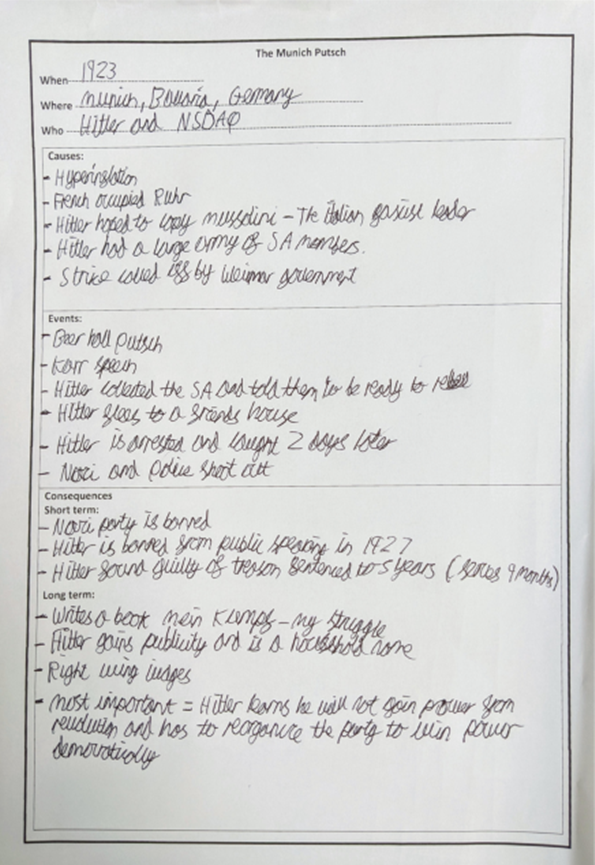 The Munich Putsch
When 1923
Where Munich, Bavaria, Germany
Who Hitler and NSDAP
Causes:
- Hyperinflation
- French occupied Ruhr
- Hitler hoped to copy mussolini - The italian fascist leader
- Hitler had a large army of SA members.
- Strike called off by Weimar government
Events:
- Beer hall putsch
- Karr speech
- Hitler collected the SA and told them to be ready to rebel
- Hitler flees to a friends house
- Hitler is arrested and caught 2 days later
- Nazi and police shoot out
Consequences
Short term:
- Nazi party is banned
- Hitler is banned from public speaking in 1927
- Hitler found guilty of treason sentenced to 5 years (serves 9 months)
Long term:
- Writes a book mein Kampf - my struggle
- Hitler gains publicity and is a household name
- Right wing judges
- most important = Hitler learns he will not gain power from
revolution and has to reorganise the party to win power
democratically